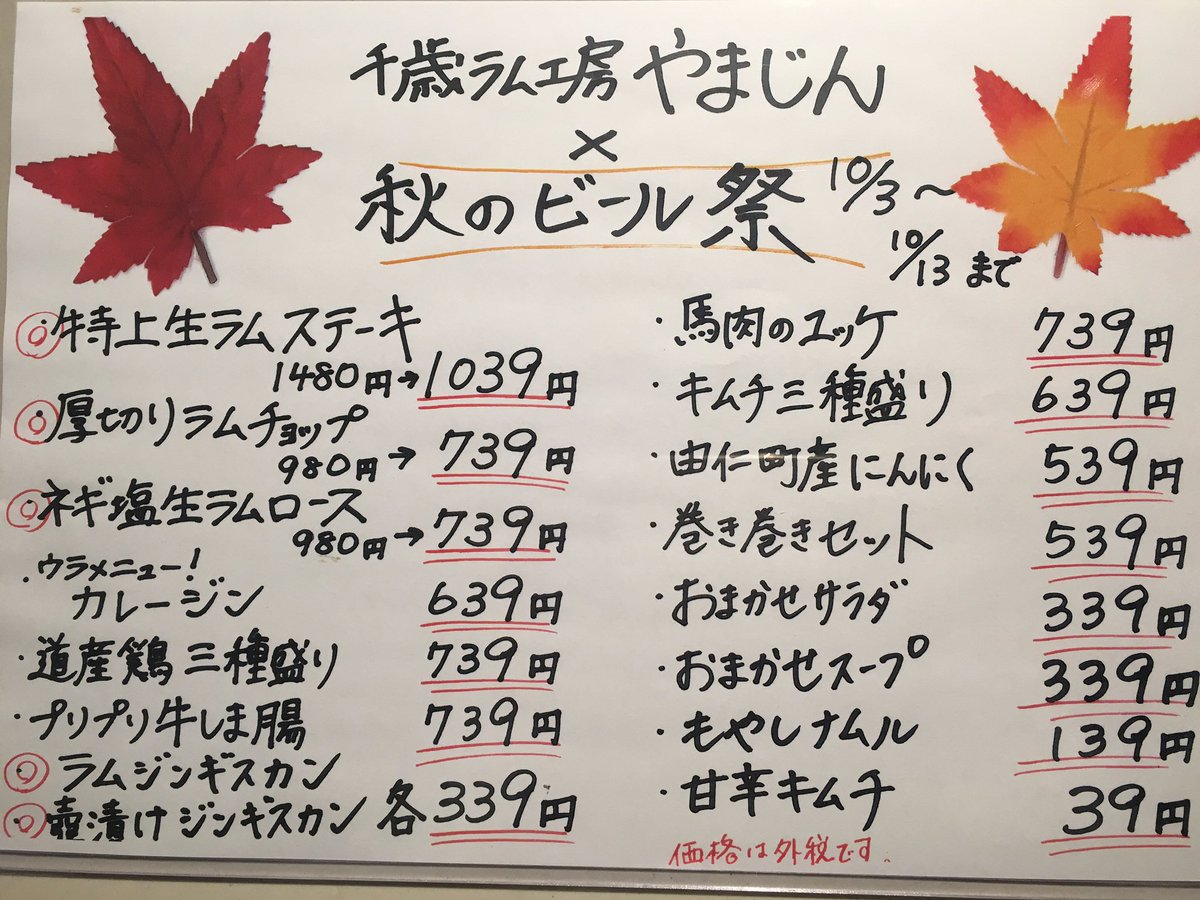 千歳ラム工房 やまじん
×
秋のビール祭 10/3〜
10/13まで
◎特上生ラムステーキ
1480円→1039円
◎厚切りラムチョップ
980円→739円
◎ネギ塩生ラムロース
980円→739円
・ウラメニュー!
カレージン 639円
・道産鶏三種盛り 739円
・プリプリ牛しま腸 739円
◎ラムジンギスカン
◎壺漬けジンギスカン 各339円
・馬肉のユッケ 739円
・キムチ三種盛り 639円
・由仁町産にんにく 539円
・巻き巻きセット 539円
・おまかせサラダ 339円
・おまかせスープ 339円
・もやしナムル 139円
・甘辛キムチ 39円
価格は外税です.